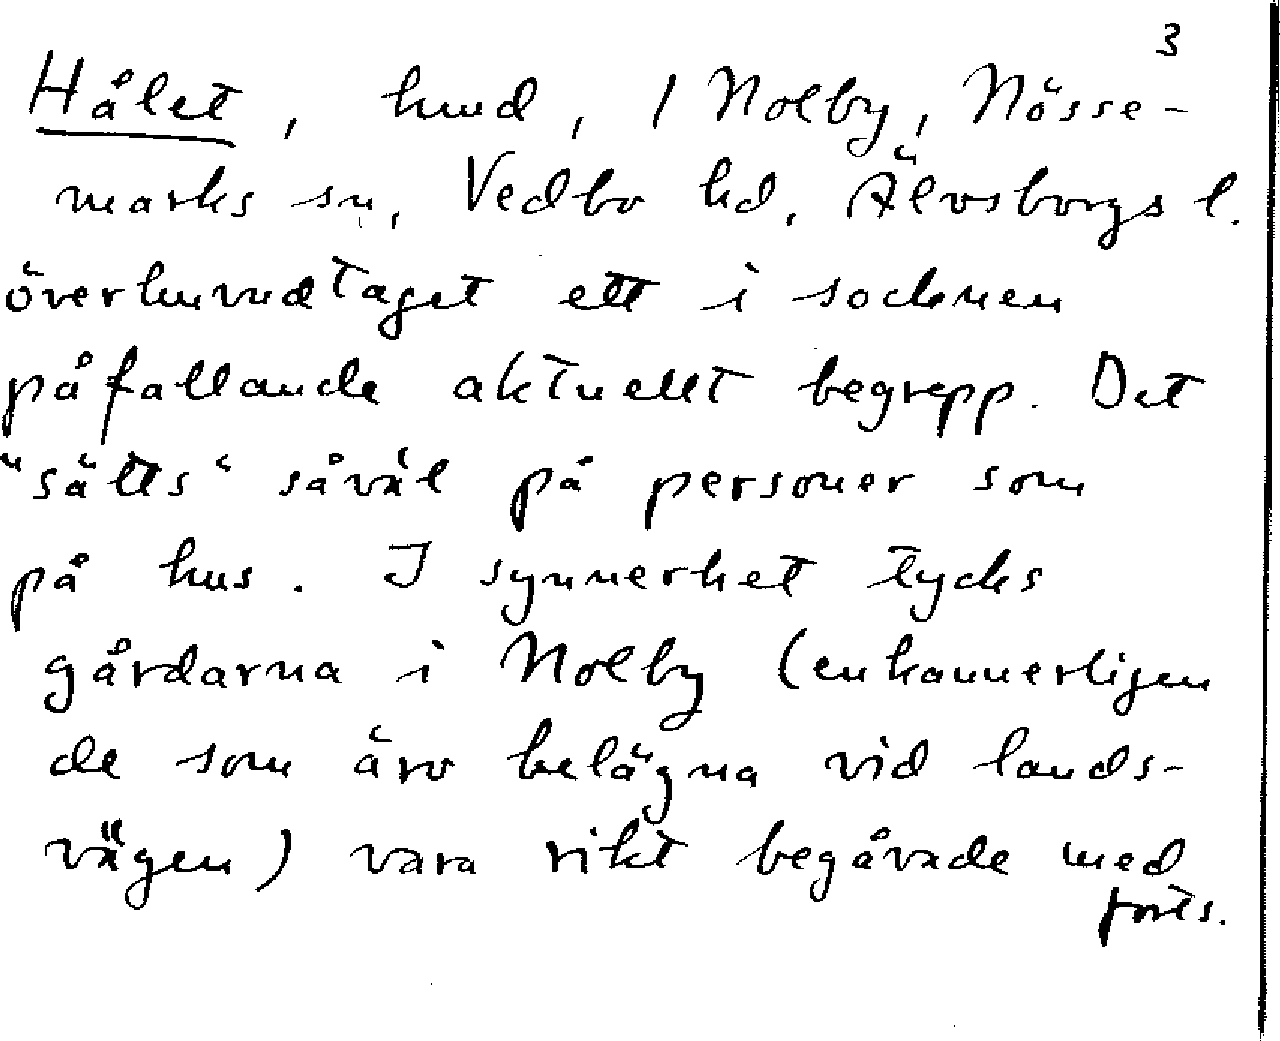 3
Hålet, hmd, 1 Nolby, Nösse-
marks sn, Vedbo hd, Älvsborgs l.
överhuvudtaget ett i socknen
påfallande aktuellt begrepp. Det
"sätts" såväl på personer som
på hus. I synnerhet tycks
gårdarna i Nolby (enkannerligen
de som äro belägna vid lands-
vägen) vara rikt begåvade med
forts.